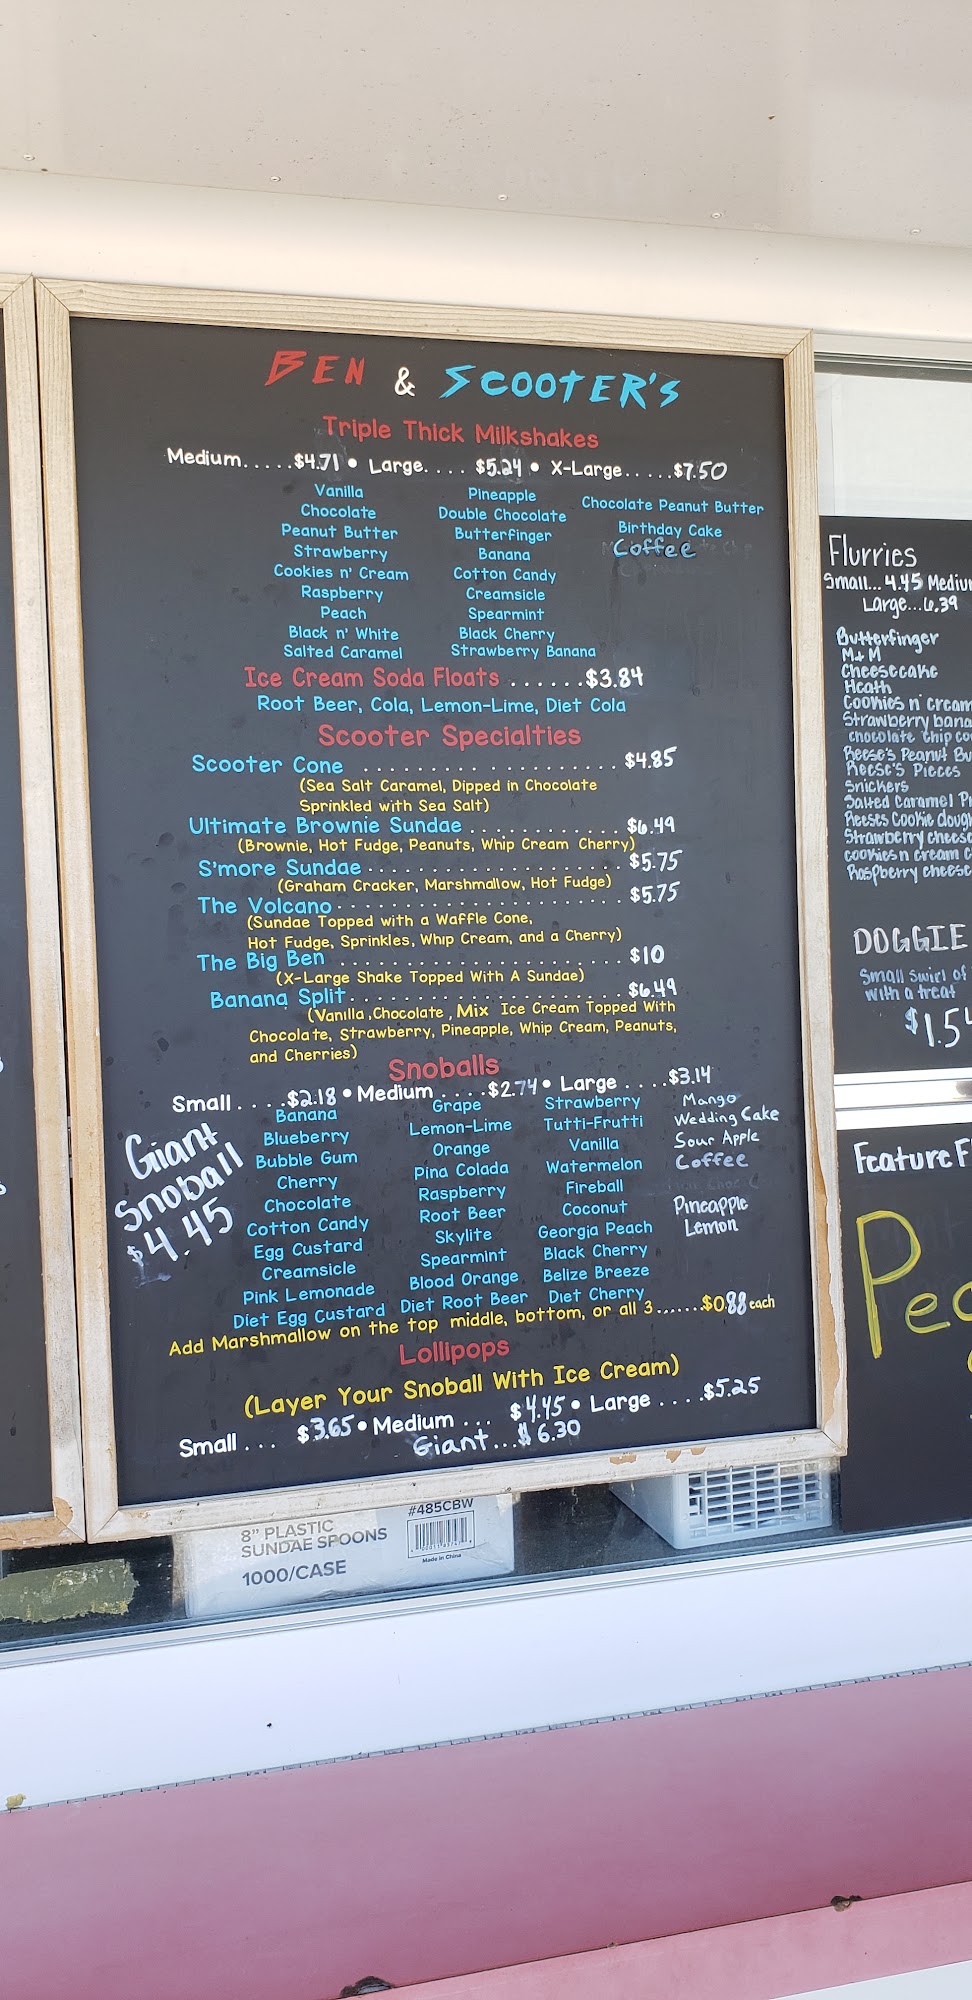 BEN & SCOOTER'S
Triple Thick Milkshakes
Medium.....$4.71 • Large.... $5.24 • X-Large.....$7.50
Vanilla
Chocolate
Peanut Butter
Strawberry
Cookies n' Cream
Raspberry
Peach
Black n' White
Salted Caramel
Pineapple
Double Chocolate
Butterfinger
Banana
Cotton Candy
Creamsicle
Spearmint
Black Cherry
Strawberry Banana
Chocolate Peanut Butter
Birthday Cake
Coffee
Ice Cream Soda Floats ......$3.84
Root Beer, Cola, Lemon-Lime, Diet Cola
Scooter Specialties
Scooter Cone .................... $4.85
(Sea Salt Caramel, Dipped in Chocolate
Sprinkled with Sea Salt)
Ultimate Brownie Sundae ............. $6.49
(Brownie, Hot Fudge, Peanuts, Whip Cream Cherry)
S'more Sundae...................... $5.75
(Graham Cracker, Marshmallow, Hot Fudge)
The Volcano........................ $5.75
(Sundae Topped with a Waffle Cone,
Hot Fudge, Sprinkles, Whip Cream, and a Cherry)
The Big Ben ........................ $10
(X-Large Shake Topped With A Sundae)
Banana Split....................... $6.49
(Vanilla, Chocolate, Mix Ice Cream Topped With
Chocolate, Strawberry, Pineapple, Whip Cream, Peanuts,
and Cherries)
Snoballs
Small.....$2.18 • Medium .....$2.74 • Large ....$3.14
Giant
Snoball
$4.45
Banana
Blueberry
Bubble Gum
Cherry
Chocolate
Cotton Candy
Egg Custard
Creamsicle
Pink Lemonade
Diet Egg Custard
Grape
Lemon-Lime
Orange
Pina Colada
Raspberry
Root Beer
Skylite
Spearmint
Blood Orange
Diet Root Beer
Strawberry
Tutti-Frutti
Vanilla
Watermelon
Fireball
Coconut
Georgia Peach
Black Cherry
Belize Breeze
Diet Cherry
Mango
Wedding Cake
Sour Apple
Coffee
Pineapple
Lemon
Add Marshmallow on the top middle, bottom, or all 3.......$0.88 each
Lollipops
(Layer Your Snoball With Ice Cream)
Small ... $3.65 • Medium ... $4.45 • Large ....$5.25
Giant...$6.30
Flurries
Small... 4.45 Mediu
Large...6.39
Butterfinger
M+M
Cheesecake
Heath
Cookies n' cream
Strawberry bana
chocolate chip co
Reese's Peanut Bu
Reese's Pieces
Snickers
Salted Caramel Pr
Reeses Cookie dough
Strawberry cheesc
cookies n cream c
Raspberry cheese
DOGGIE
Small swirl of
with a treat
$1.5
Feature F
Pe
8" PLASTIC
SUNDAE SPOONS
1000/CASE
#485CBW
Made in China